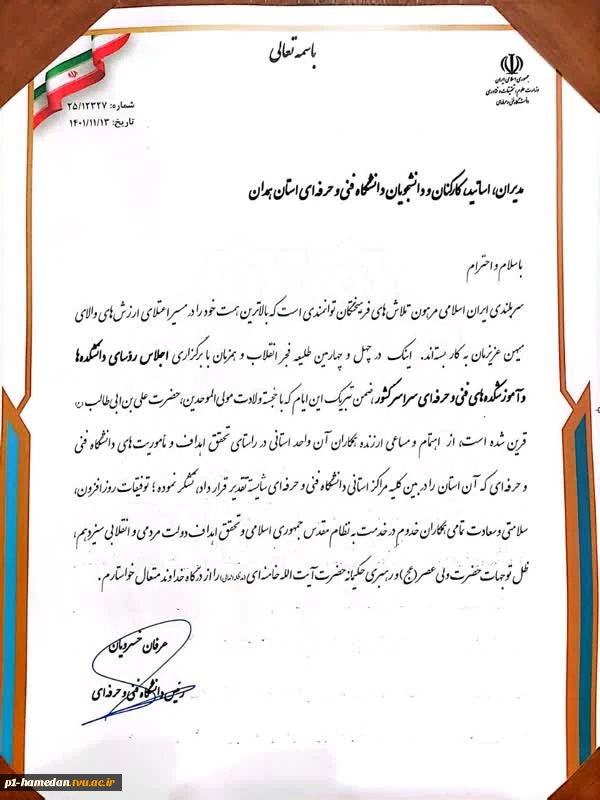 باسمه تعالی
جمهوری اسلامی ایران
وزارت علوم، تحقیقات و فناوری
دانشگاه فنی و حرفه‌ای
شماره: ۲۵/۱۲۳۲۷
تاریخ: ۱۴۰۱/۱۱/۱۳
مدیران، اساتید، کارکنان و دانشجویان دانشگاه فنی و حرفه ای استان همدان
با سلام و احترام
سربلندی ایران اسلامی مرهون تلاش‌های فرهیختگان توانمندی است که بالاترین همت خود را در مسیر اعتلای ارزش‌های والای
میهن عزیزمان به کار بسته‌اند. اینک در چهل و چهارمین طلیعه فجر انقلاب و همزمان با برگزاری اجلاس رؤسای دانشکده‌ها
و آموزشکده‌های فنی و حرفه‌ای سراسر کشور، ضمن تبریک این ایام که با خجسته ولادت مولی الموحدین، حضرت علی بن ابی طالب
قرین شده است، از اهتمام و مساعی ارزنده همکاران آن واحد استانی در راستای تحقق اهداف و مأموریت‌های دانشگاه فنی
و حرفه‌ای که آن استان را در بین کلیه مراکز استانی دانشگاه فنی و حرفه‌ای شایسته تقدیر قرار داد، تشکر نموده؛ توفیقات روزافزون،
سلامتی و سعادت تمامی همکاران خدوم در خدمت به نظام مقدس جمهوری اسلامی و تحقق اهداف دولت مردمی و انقلابی سیزدهم،
ظل توجهات حضرت ولی عصر (عج) و رهبری حکیمانه حضرت آیت الله خامنه‌ای را از درگاه خداوند متعال خواستارم.
عرفان خسرویان
رئیس دانشگاه فنی و حرفه‌ای
p1-hamedan.tvu.ac.ir